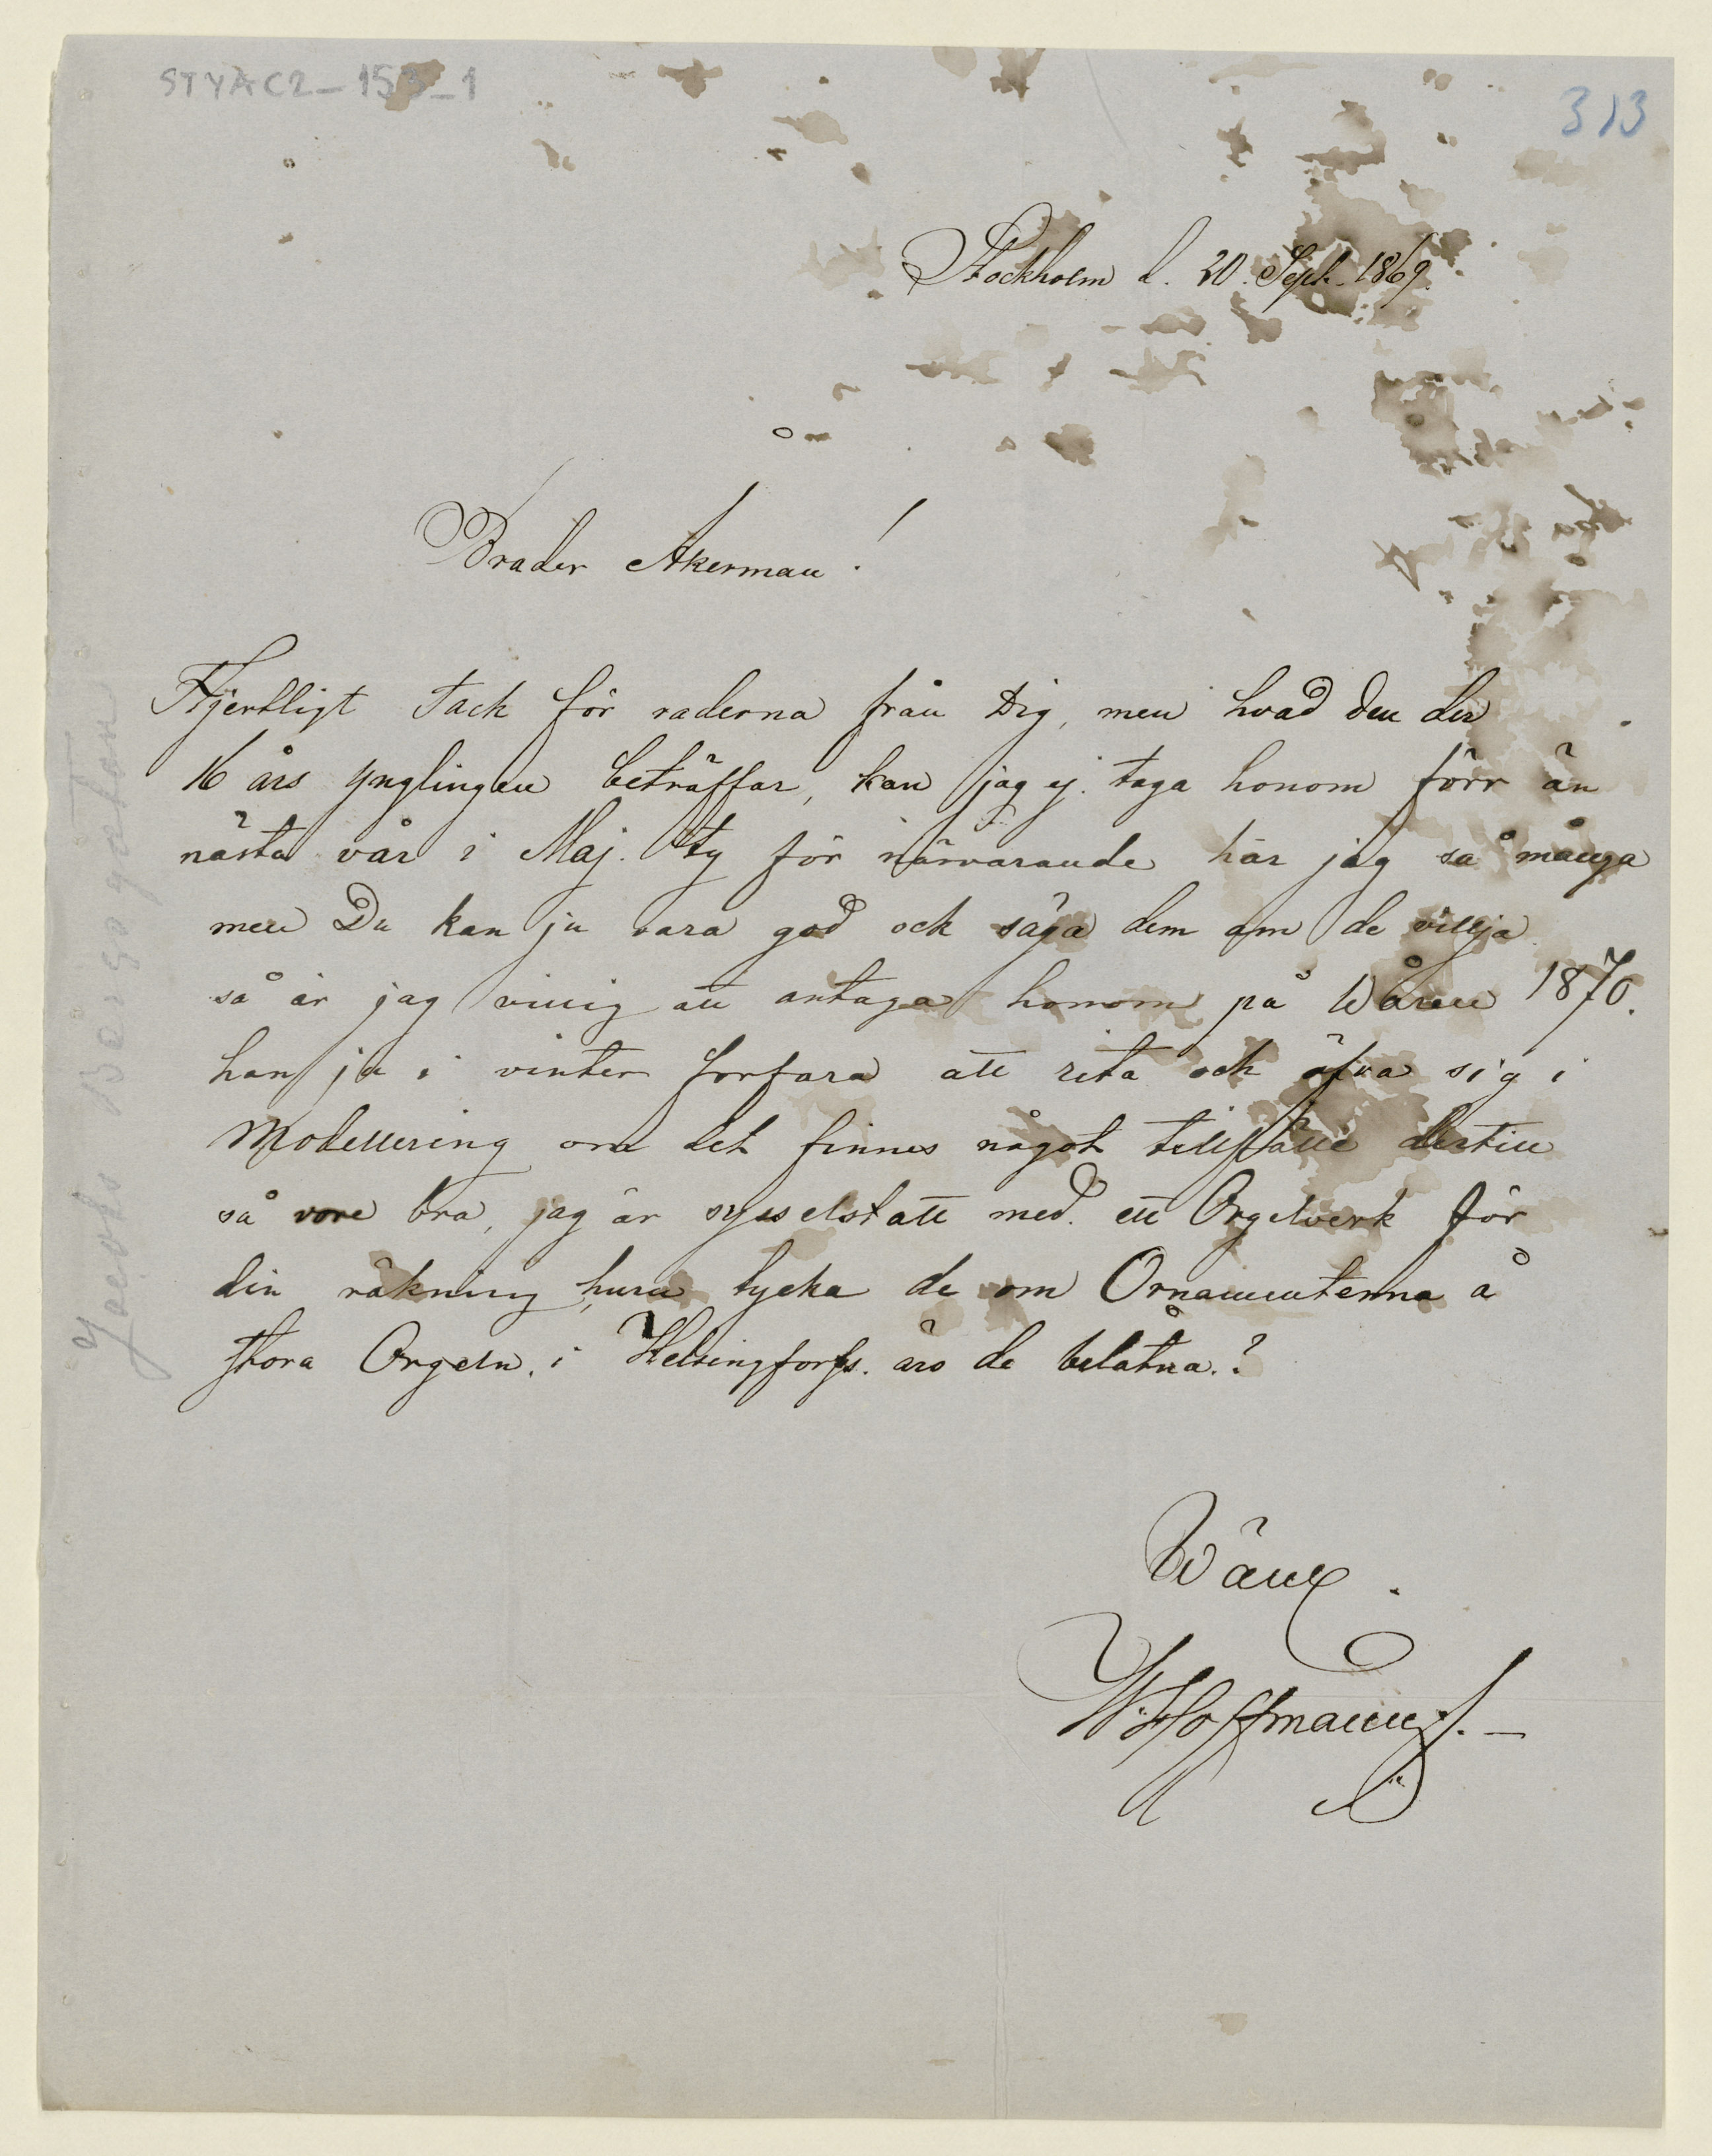 STYAC2_153_1
313
Stockholm d. 20. Sept. 1869.
Brader Åkerman!
Hjertligt Tack för raderna från Dig, men hvad den der
16 års ynglingen beträffar, kan jag ej. taga honom förr än
nästa vår i Maj. ty för närvarande har jag så många
men Du kan ju vara god och säga dem om de villja
så är jag villig att antaga honom på Wåren 1870.
han ju i vinter forfara att rita och öfva sig i
Modellering om det finnes något tillfälle dertill
så vore bra, jag är sysselstatt med. ett Orgelverk för
din räkning, huru tycka de om Ornamentenna å
stora Orgeln. i Helsingforfs. äro de belåtna.?
Wän.
W. Hoffmann. —
Jacobs Bergsgatan